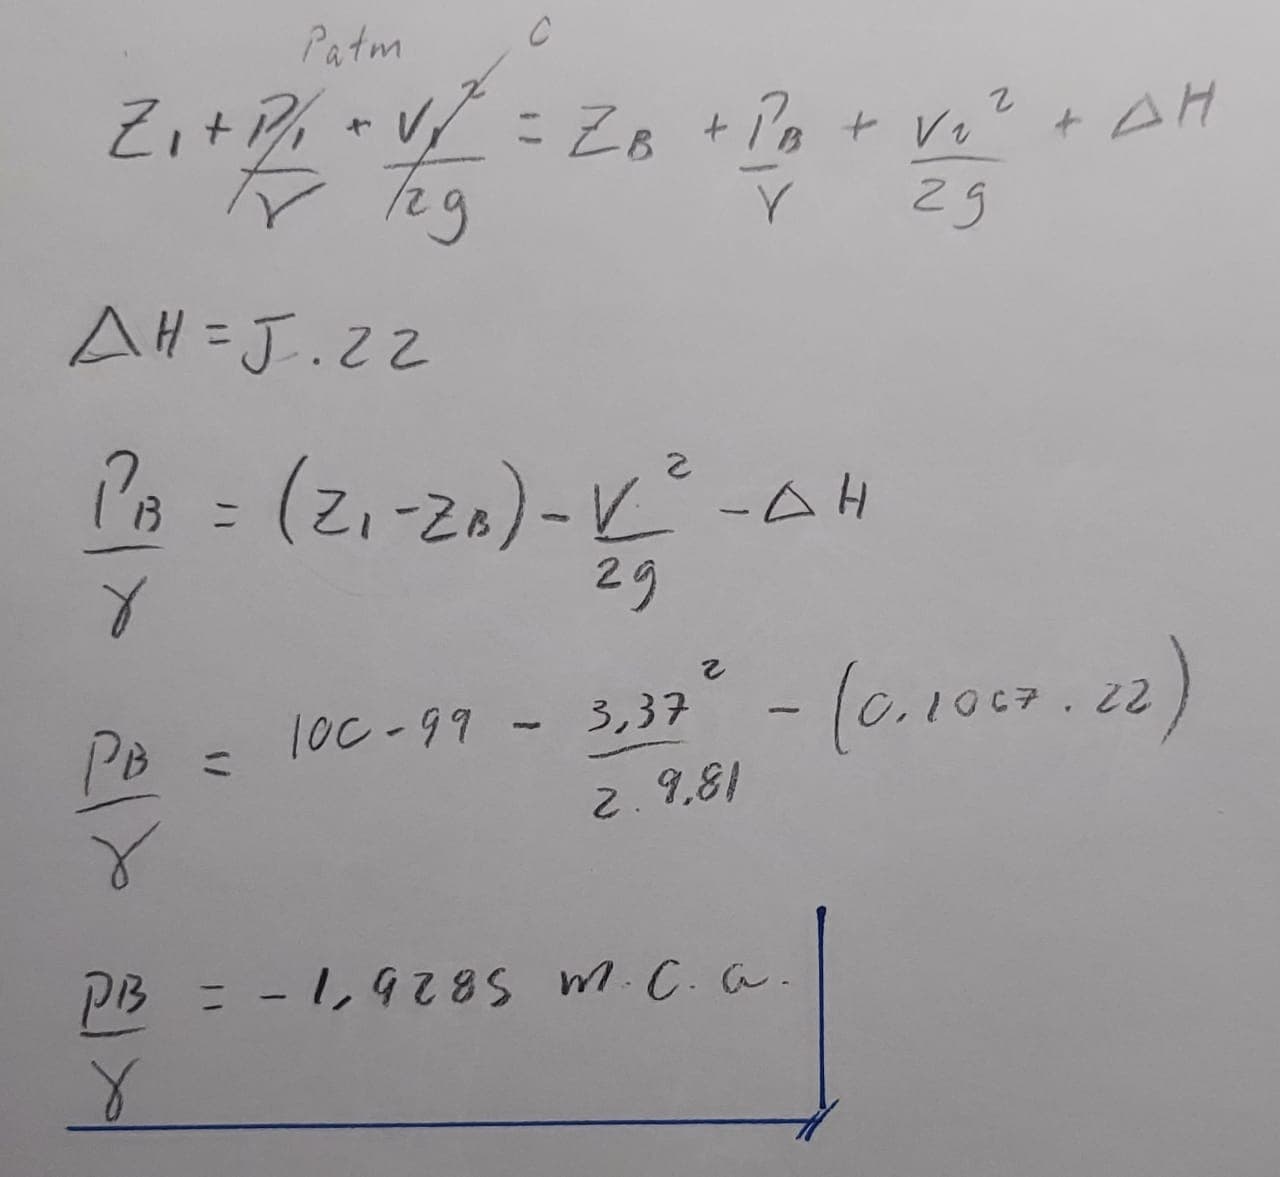 Patm 0
Z₁ + P₁/γ + V₁²/2g = Z_B + P_B/γ + V₂²/2g + ΔH
ΔH = J . 22
P_B/γ = (Z₁ - Z_B) - V²/2g - ΔH
P_B/γ = 100 - 99 - 3,37²/2 . 9,81 - (0,1067 . 22)
P_B/γ = -1,9285 m.c.a.